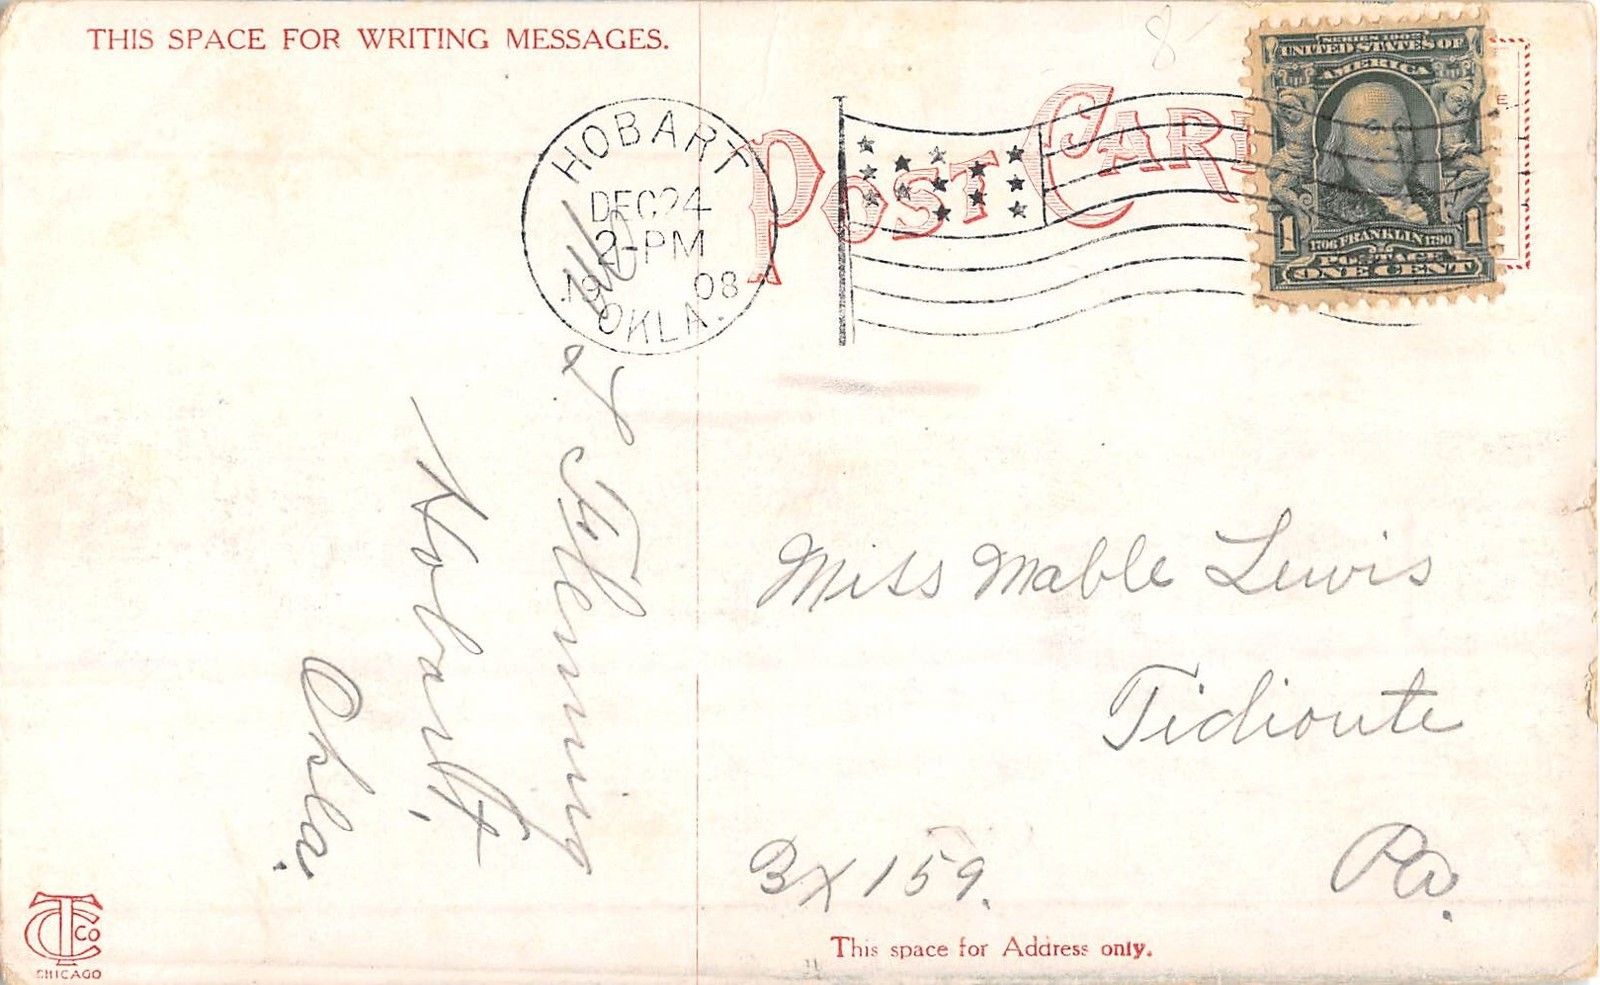 THIS SPACE FOR WRITING MESSAGES.
8
POST CAR
HOBART
DEC 24
2-PM
1908
OKLA.
SERIES 1902
UNITED STATES OF
AMERICA
1 1706 FRANKLIN 1790 1
POSTAGE
ONE CENT
Flemming
Hobart,
Okla.
Miss Mable Lewis
Tidioute
Bx 159.
Pa.
This space for Address only.
TCCo
CHICAGO